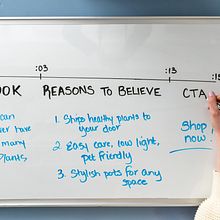 :03 :13 :15
OOK REASONS TO BELIEVE CTA
can
ver have
many
plants
1. Ships healthy plants to
your door
2. Easy care, low light,
pet friendly
3. Stylish pots for any
space
Shop
now